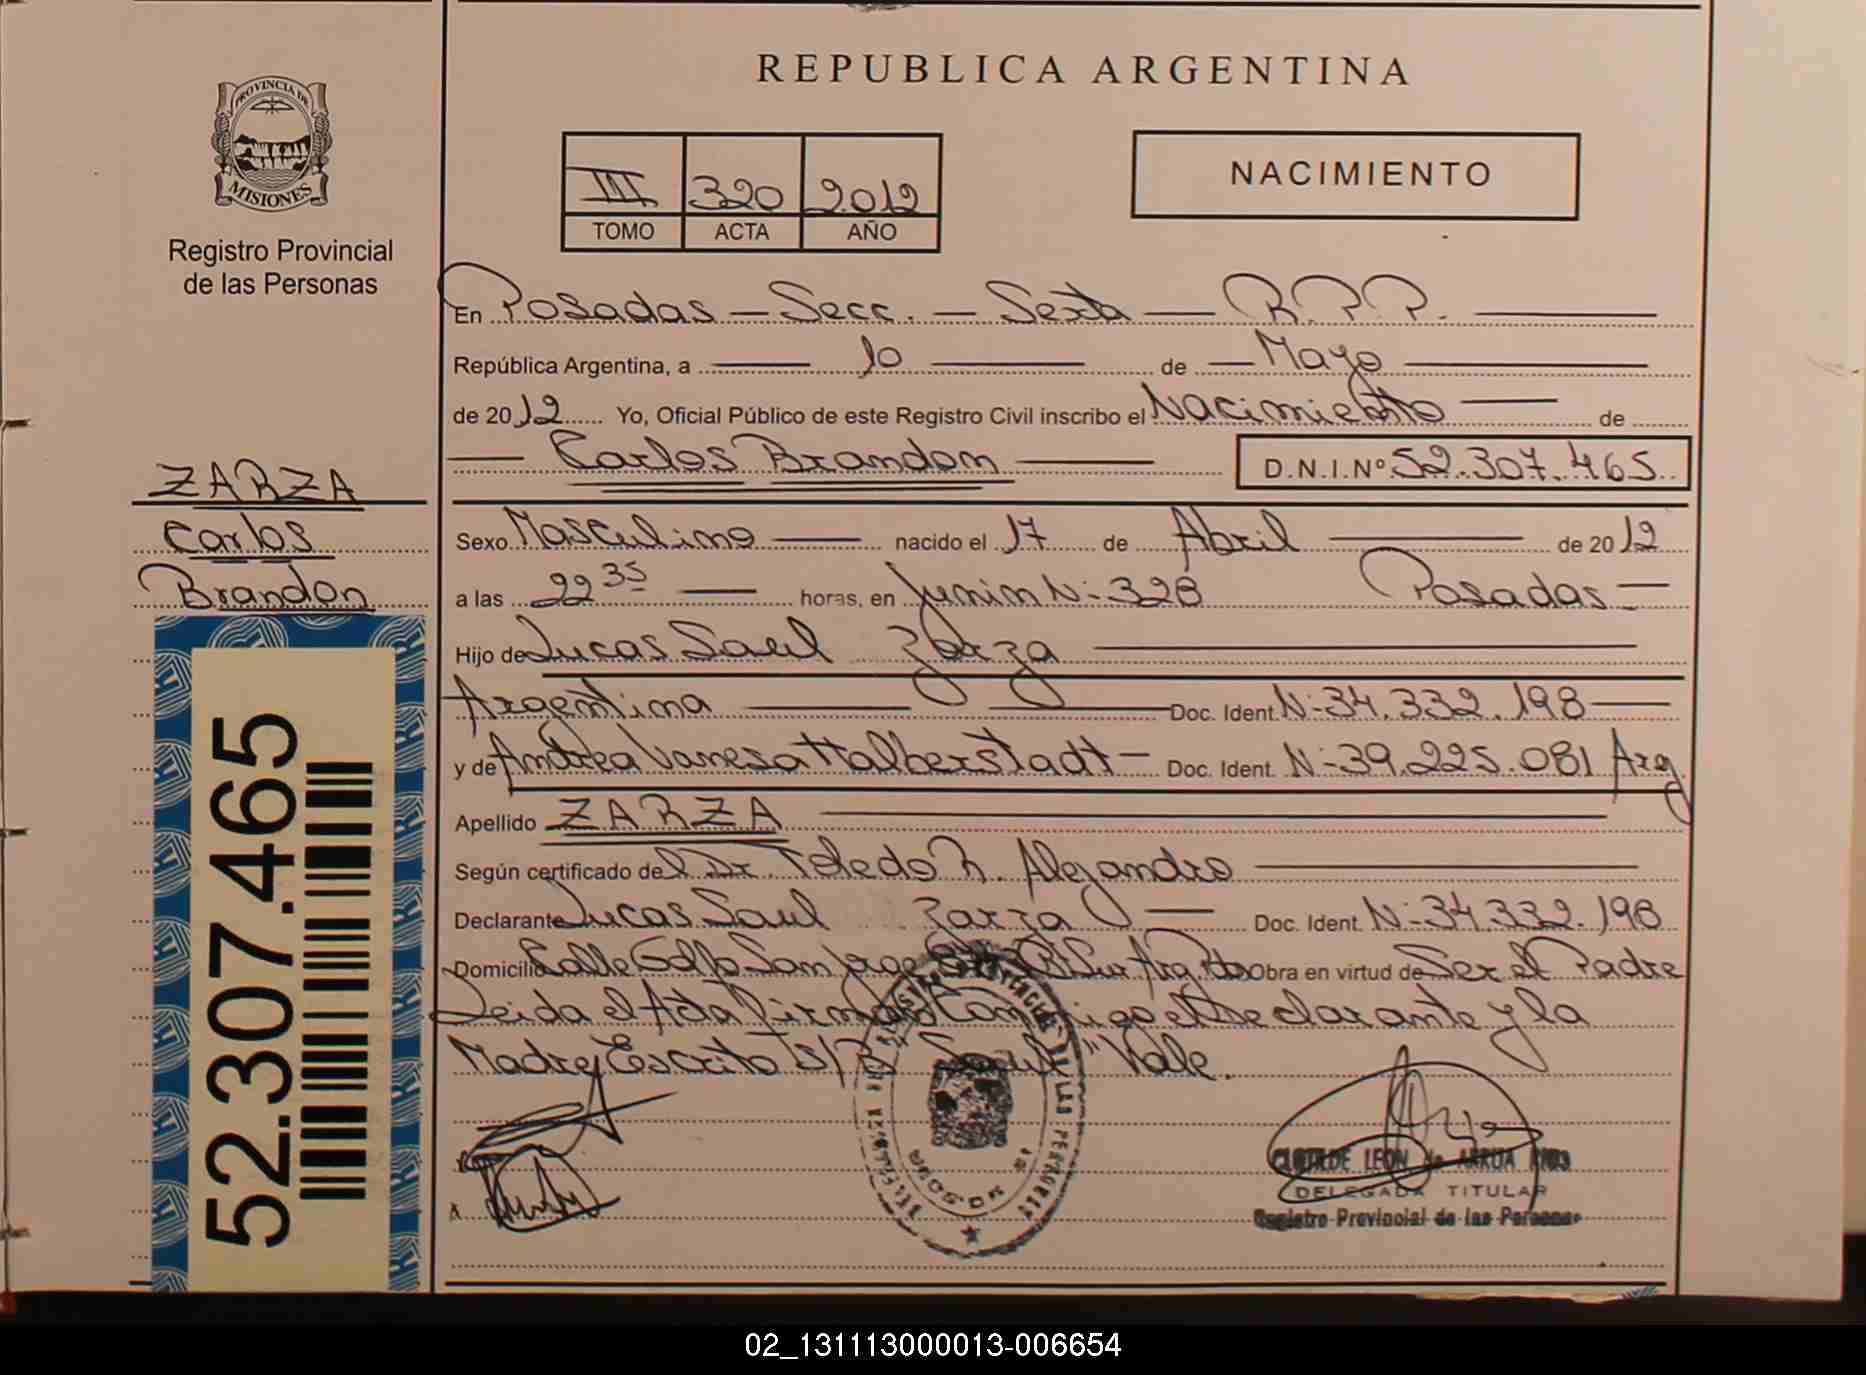 REPUBLICA ARGENTINA
PROVINCIA DE
MISIONES
Registro Provincial
de las Personas
III 320 2012
TOMO ACTA AÑO
NACIMIENTO
En Posadas - Secc. - Sexta - R.P.P.
República Argentina, a 10 de Mayo
de 2012 Yo, Oficial Público de este Registro Civil inscribo el Nacimiento de
Carlos Brandon D.N.I.Nº 52.307.465
ZARZA
Carlos
Brandon
52.307.465
Sexo Masculino nacido el 17 de Abril de 2012
a las 22 35 horas, en Junin N- 328 Posadas
Hijo de Lucas Saul Zarza
Argentina Doc. Ident. N- 34.332.198
y de Andrea Vanesa Halberstadt Doc. Ident. N- 39.225.081 Arg
Apellido ZARZA
Según certificado del Dr. Toledo R. Alejandro
Declarante Lucas Saul Zarza Doc. Ident. N- 34.332.198
Domicilio Calle Golfo San Jorge Obra en virtud de Ser el Padre
Leida el Acta Firman Conmigo el Declarante y la
Madre, Escrito S/R "Saul" Vale.
CLOTILDE LEON de ARRUA RIOS
DELEGADA TITULAR
Registro Provincial de las Personas
02_131113000013-006654